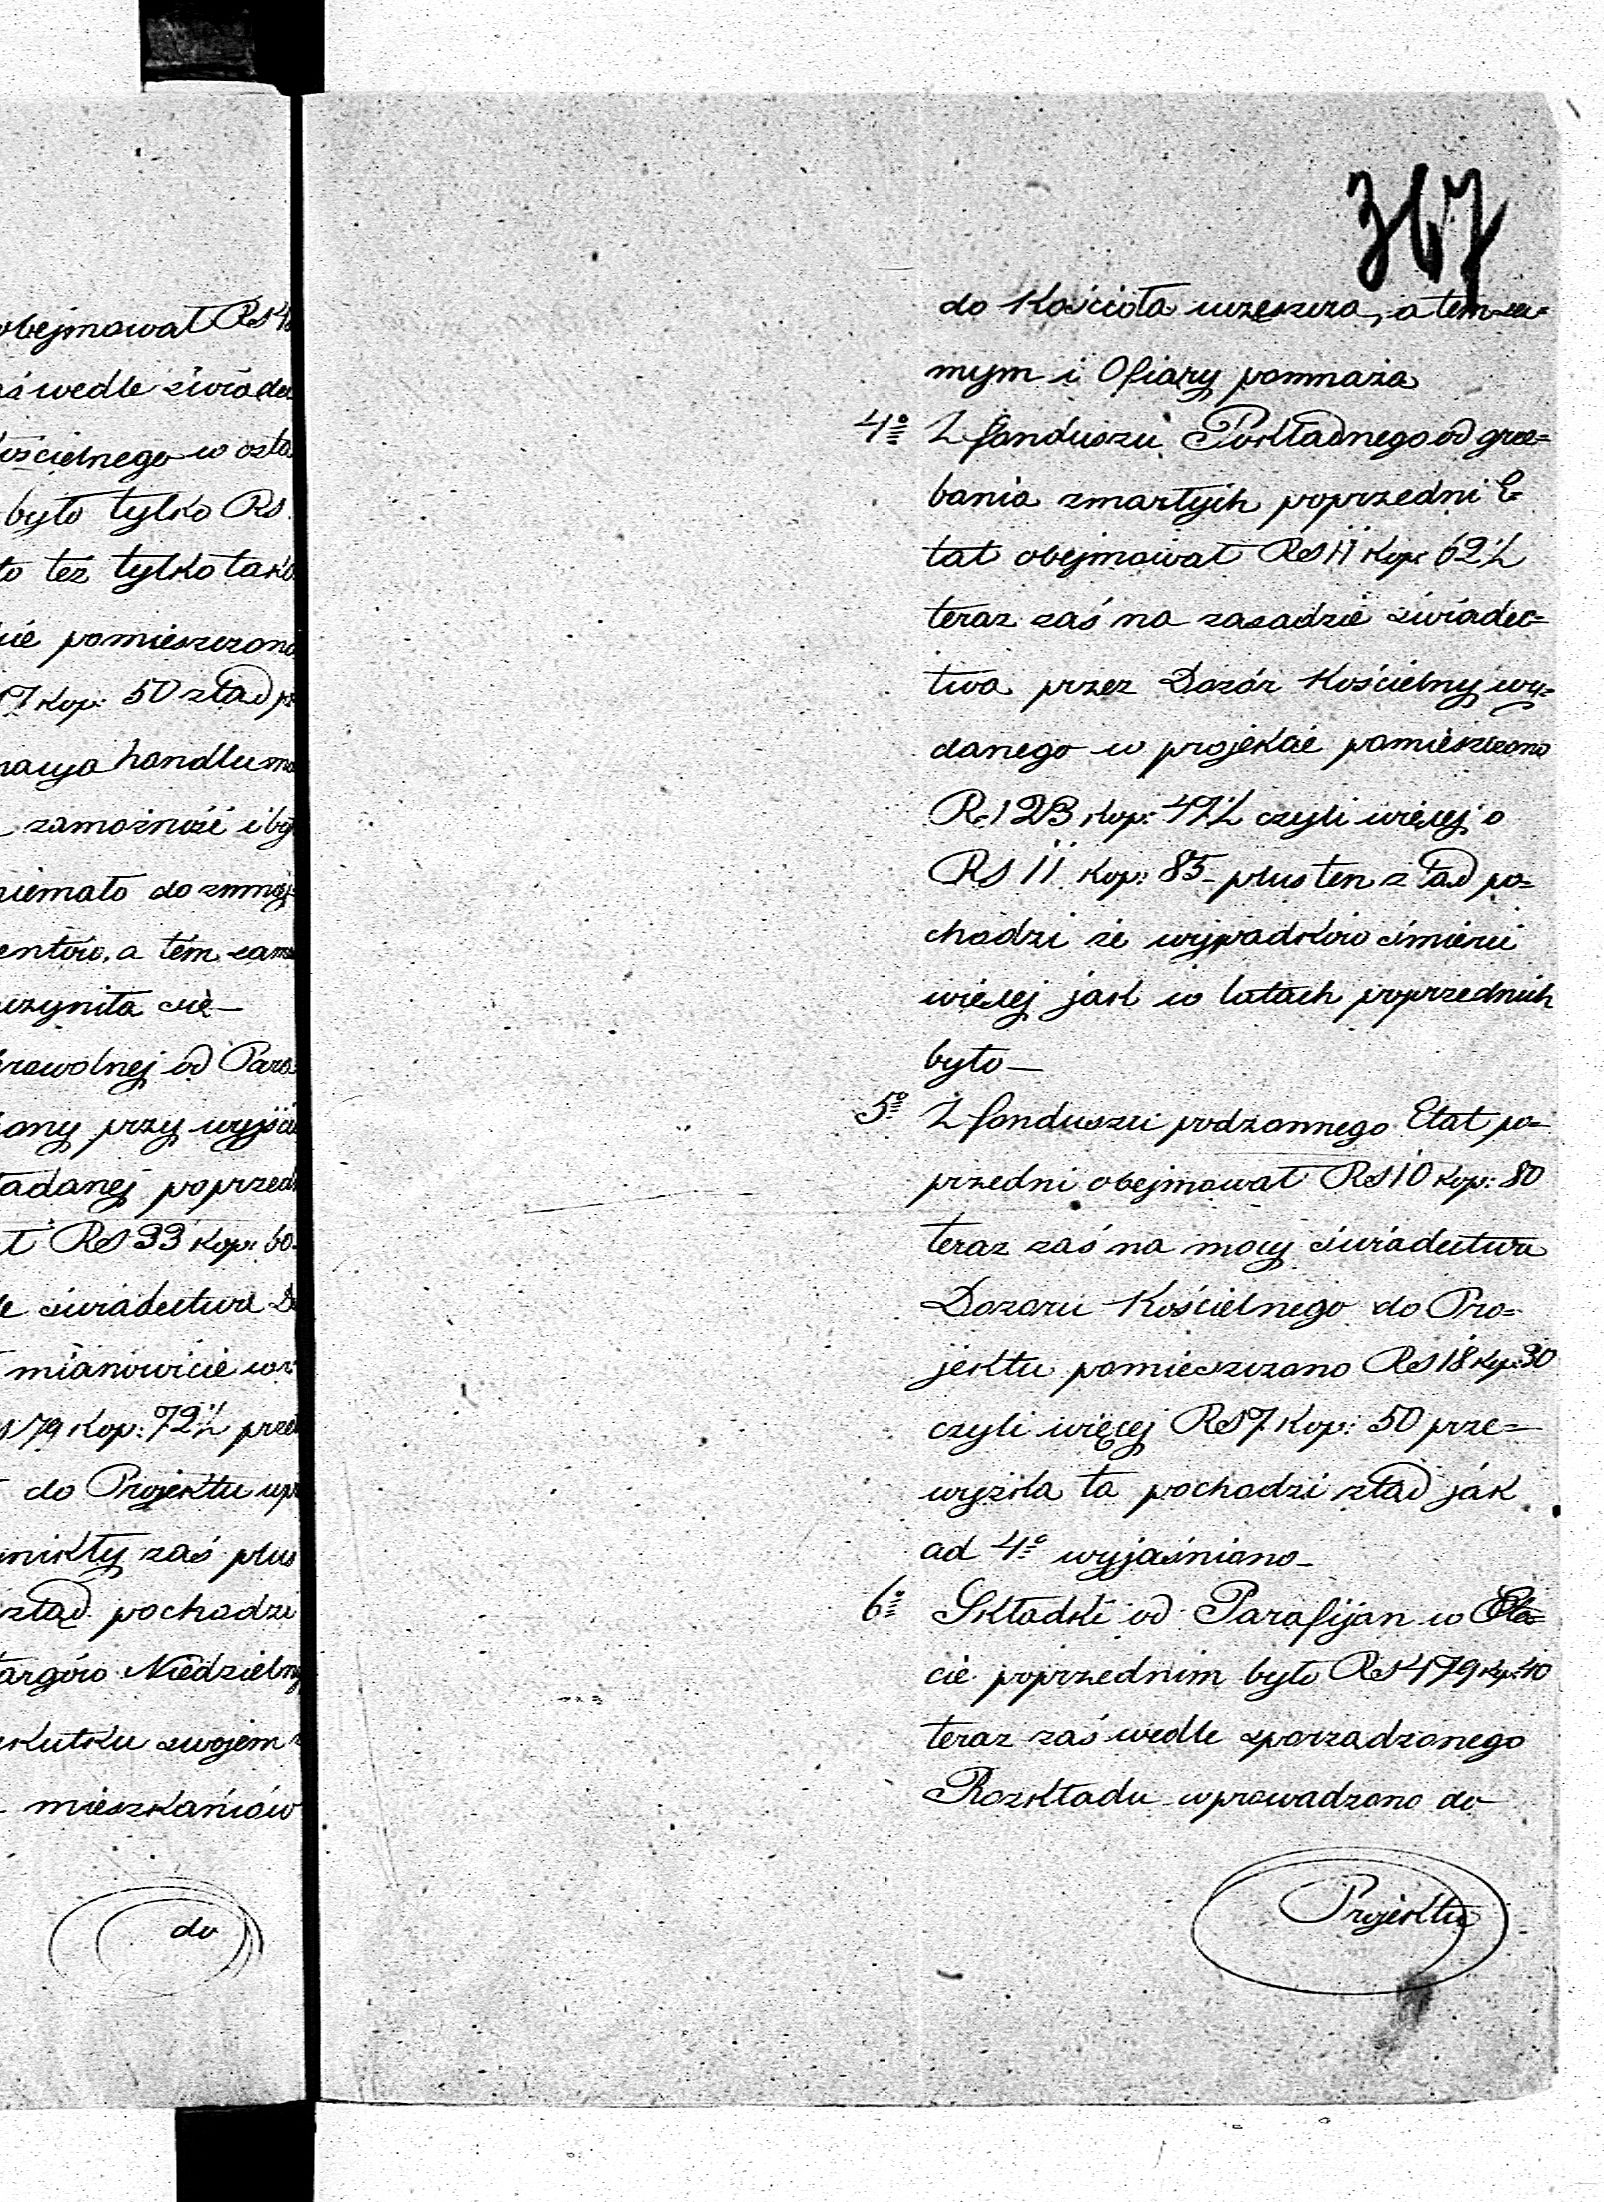 obejmował RS
wedle świadec
Kościelnego w osta
było tylko RS.
to też tylko tako
pomieszczono
17 Kop: 50 ztąd
handlu
zamożność i by
niemało do zmniej
a tém sam
czyniła się—
browolnej od Para
przy wyjściu
poprzedn
RS 33 Kop: 60.
świadectwa Do
mianowicie
RS 79 Kop: 72½
do Projektu
zaś plus
ztąd pochodzi
targów Niedzielny
skutku swojem
mieszkańców
do
367
do Kościoła uczęszcza, a tem sa=
mym i Ofiary pomnaża
4º Z fonduszu Pokładnego od grze=
bania zmarłych poprzedni E=
tat obejmował RS 11 Kop: 62½
teraz zaś na zasadzie świadec=
twa przez Dozór Kościelny wy=
danego w projekcie pomieszczono
RS 23 Kop: 47½ czyli więcej o
RS 11 Kop: 85— plus ten ztąd po=
chodzi że wypadków śmierci
więcej jak w latach poprzednich
było—
5º Z fonduszu podzwonnego Etat po=
przedni obejmował RS 10 Kop: 80
teraz zaś na mocy świadectwa
Dozoru Kościelnego do Pro=
jektu pomieszczono RS 18 Kop: 30
czyli więcej RS 7 Kop: 50 prze=
wyżka ta pochodzi ztąd jak
ad 4º wyjaśniono—
6º Składki od Parafijan w Eta=
cie poprzednim było RS 479 Kop: 40
teraz zaś wedle sporządzonego
Rozkładu wprowadzono do
Projektu